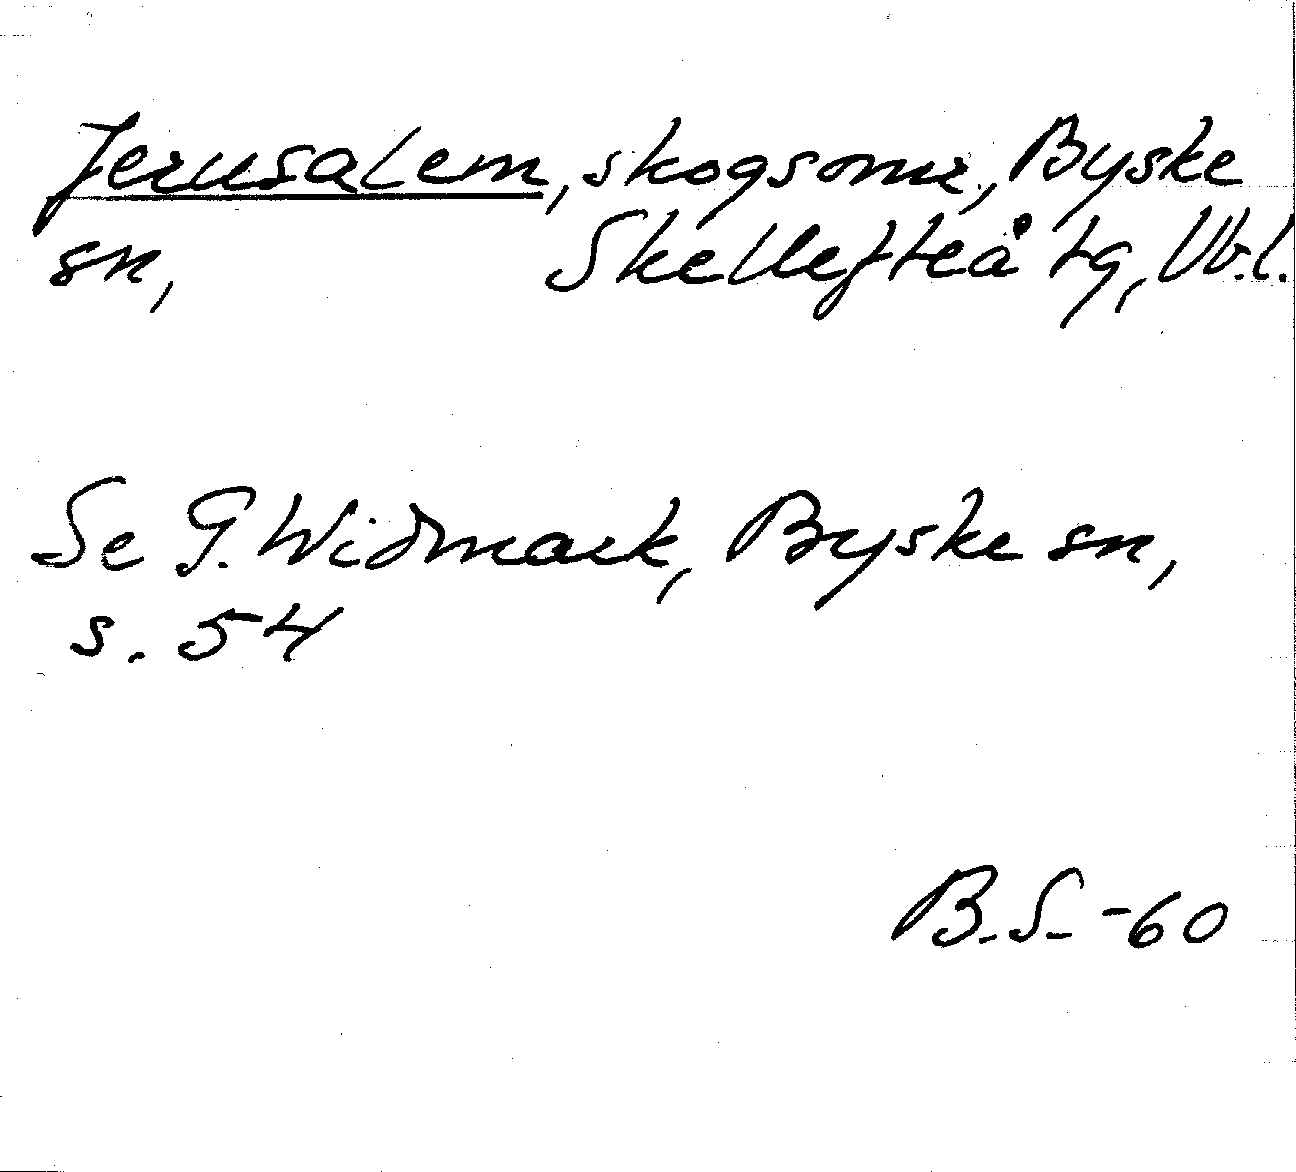 Jerusalem, skogsomr., Byske
sn, Skellefteå tg, Vb.l.
Se G. Widmark, Byske sn,
s. 54
B.S. -60